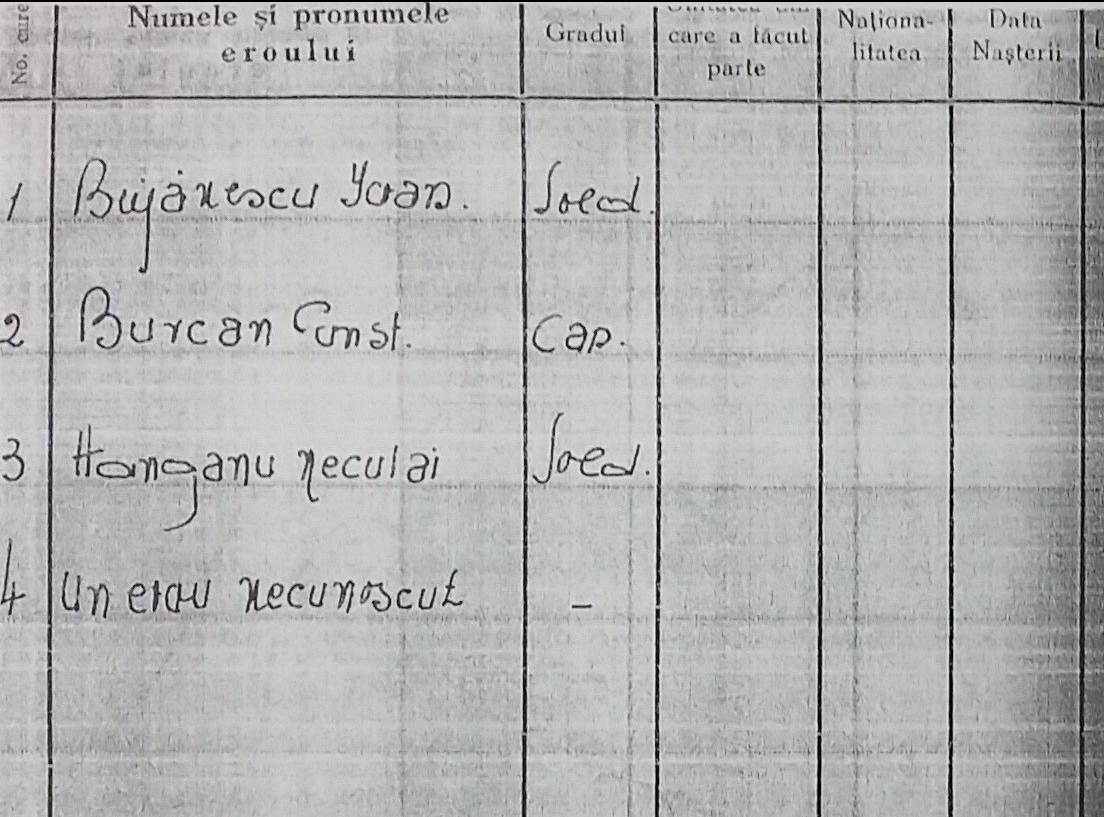 No. cure
Numele și pronumele
eroului
Gradul
care a făcut
parte
Naționa-
litatea
Data
Nașterii
1 Bujănescu Ioan. Sold.
2 Burcan Const. Cap.
3 Hanganu Neculai Sold.
4 Un erou necunoscut -